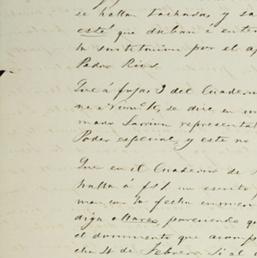 se hallan tachadas y sa
este que duban é enten
la sustitucion por el a
Padre Rios.
Que á fojas 3 del Cuadern
se dice en un
representa
Poder especial, y este no
Que en el Cuaderno de
halla á f 21 un escrito
mar con la fecha enmen
diga Marzo, pareciendo que
el documento que acomp
cha 4 de Febrero. Si al